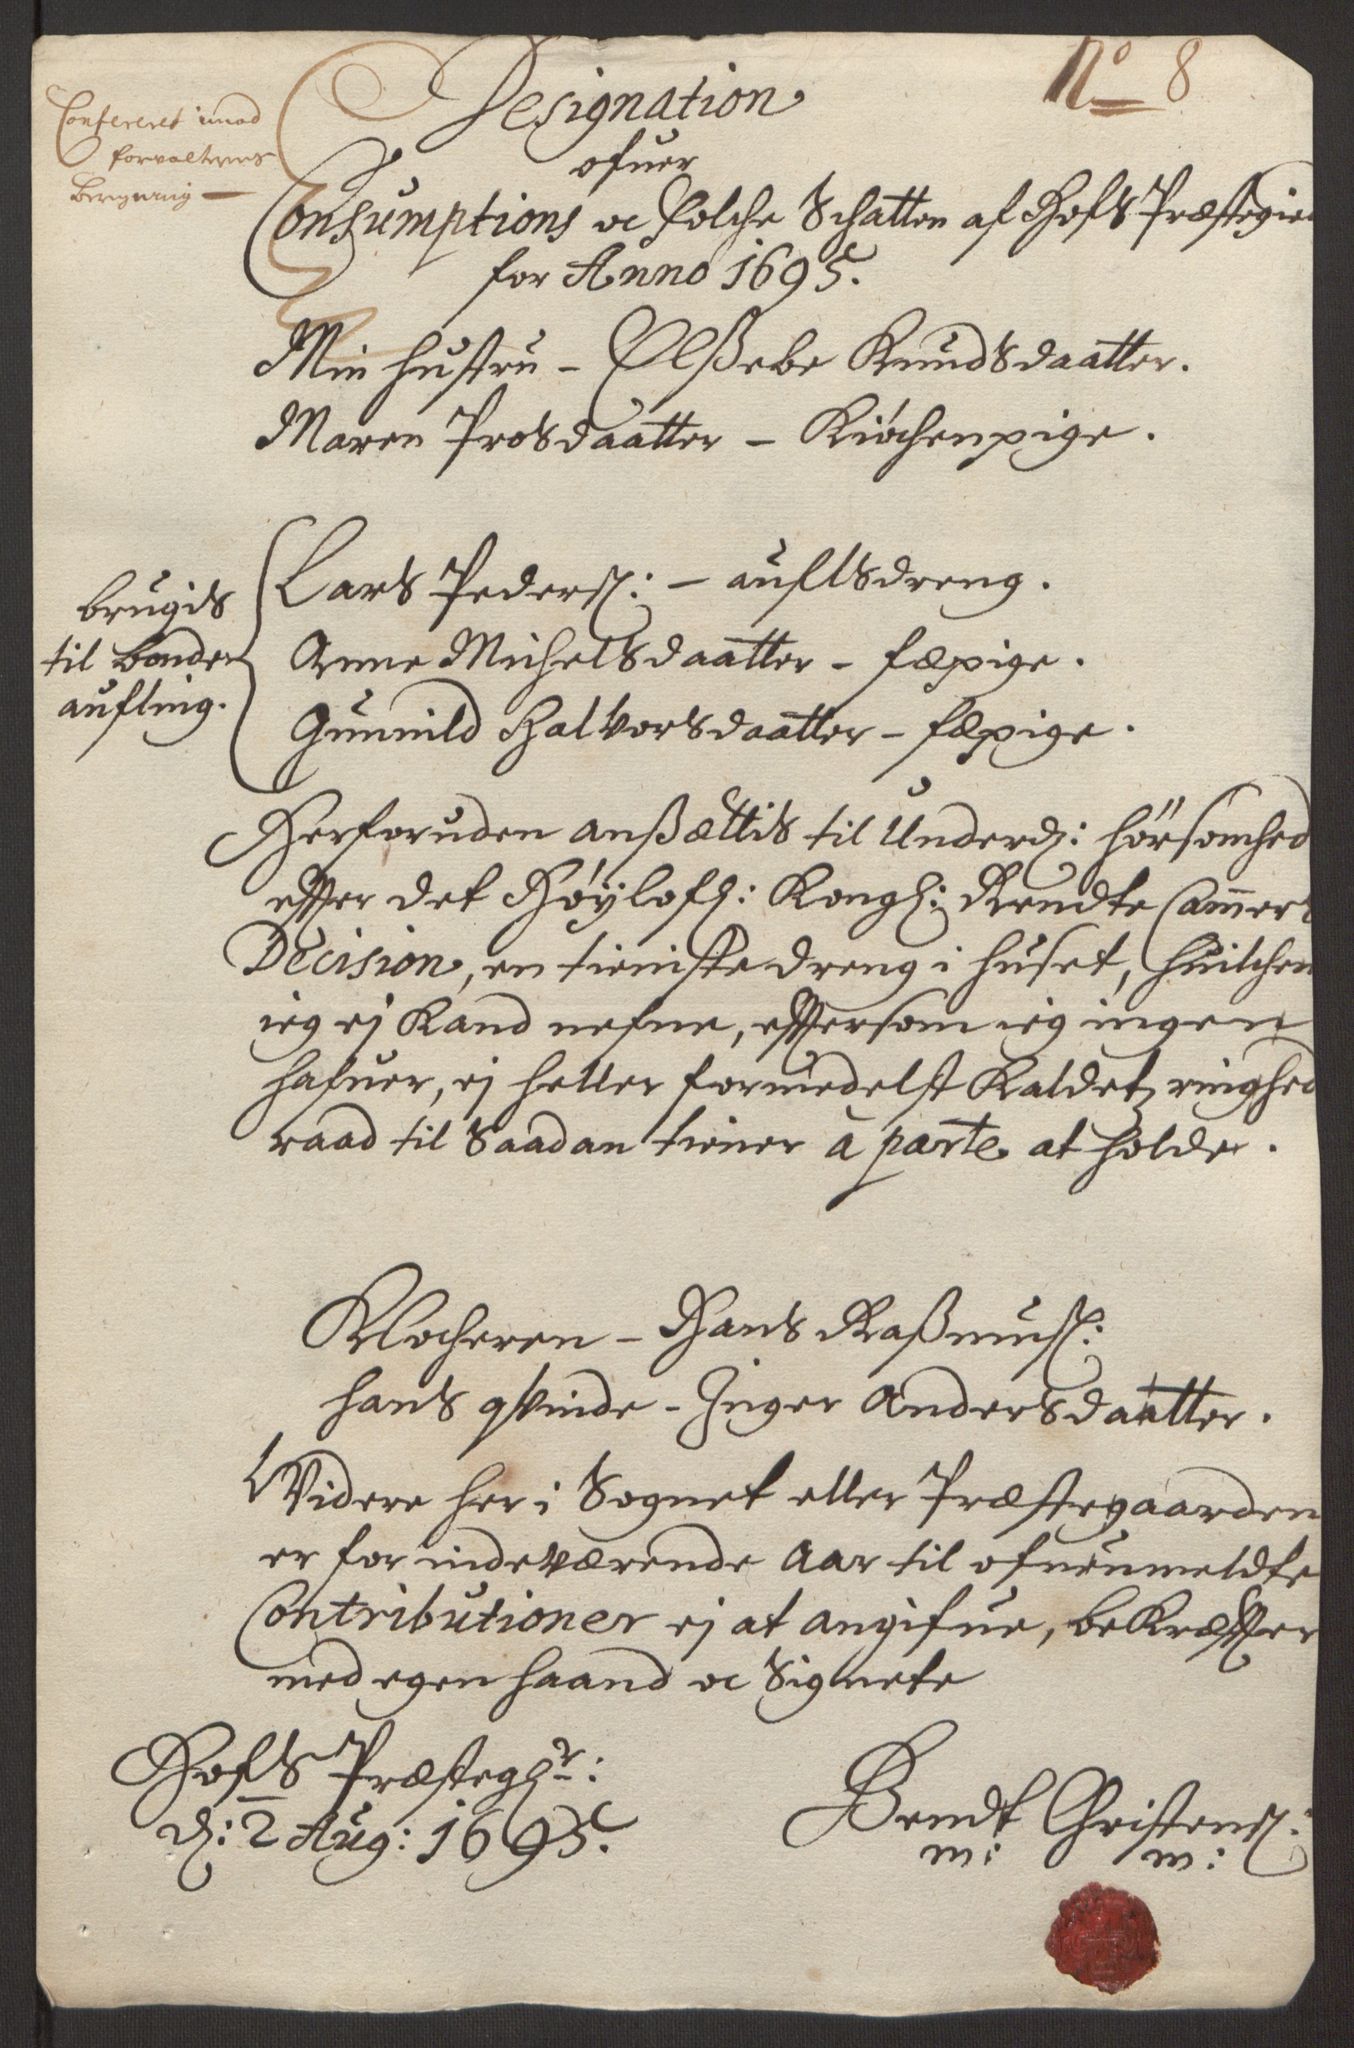 No 8
Confereret imod
forvalterens
Beregning —
Designation
ofuer
Consumptions oc Folche Schatten af Hofs Præstegield
for Anno 1695.
Min hustru - Elßebe Knudsdaatter.
Maren Prosdaatter - Kiöchenpige.
brugis
til bonde
aufling.
Lars Peders: - auflsdreng.
Anne Michelsdaatter - fæpige.
Gunnild Halvorsdaatter - fæpige.
Herforuden anßættis til Underd: hörsomhed
effter det Höylofl: Kongl: Rendte Cammers
Decision, en tieniste dreng i huset, huilchen
ieg ej kand nefne, efftersom ieg ingen
hafuer, ej heller formedelst kaldets ringhed
raad til saadan tiener à parte at holde.
Klocheren - Hans Raßmus:
hans qvinde - Inger Andersdaatter.
Videre her i Sognet eller Præstegaarden
er for indeværende Aar til ofuenmeldte
Contributioner ej at angifue, bekræffter
med egen haand oc Signete
Hofs Præstegr:
d: 2 Aug: 1695.
Bendt Christens:
m: m: